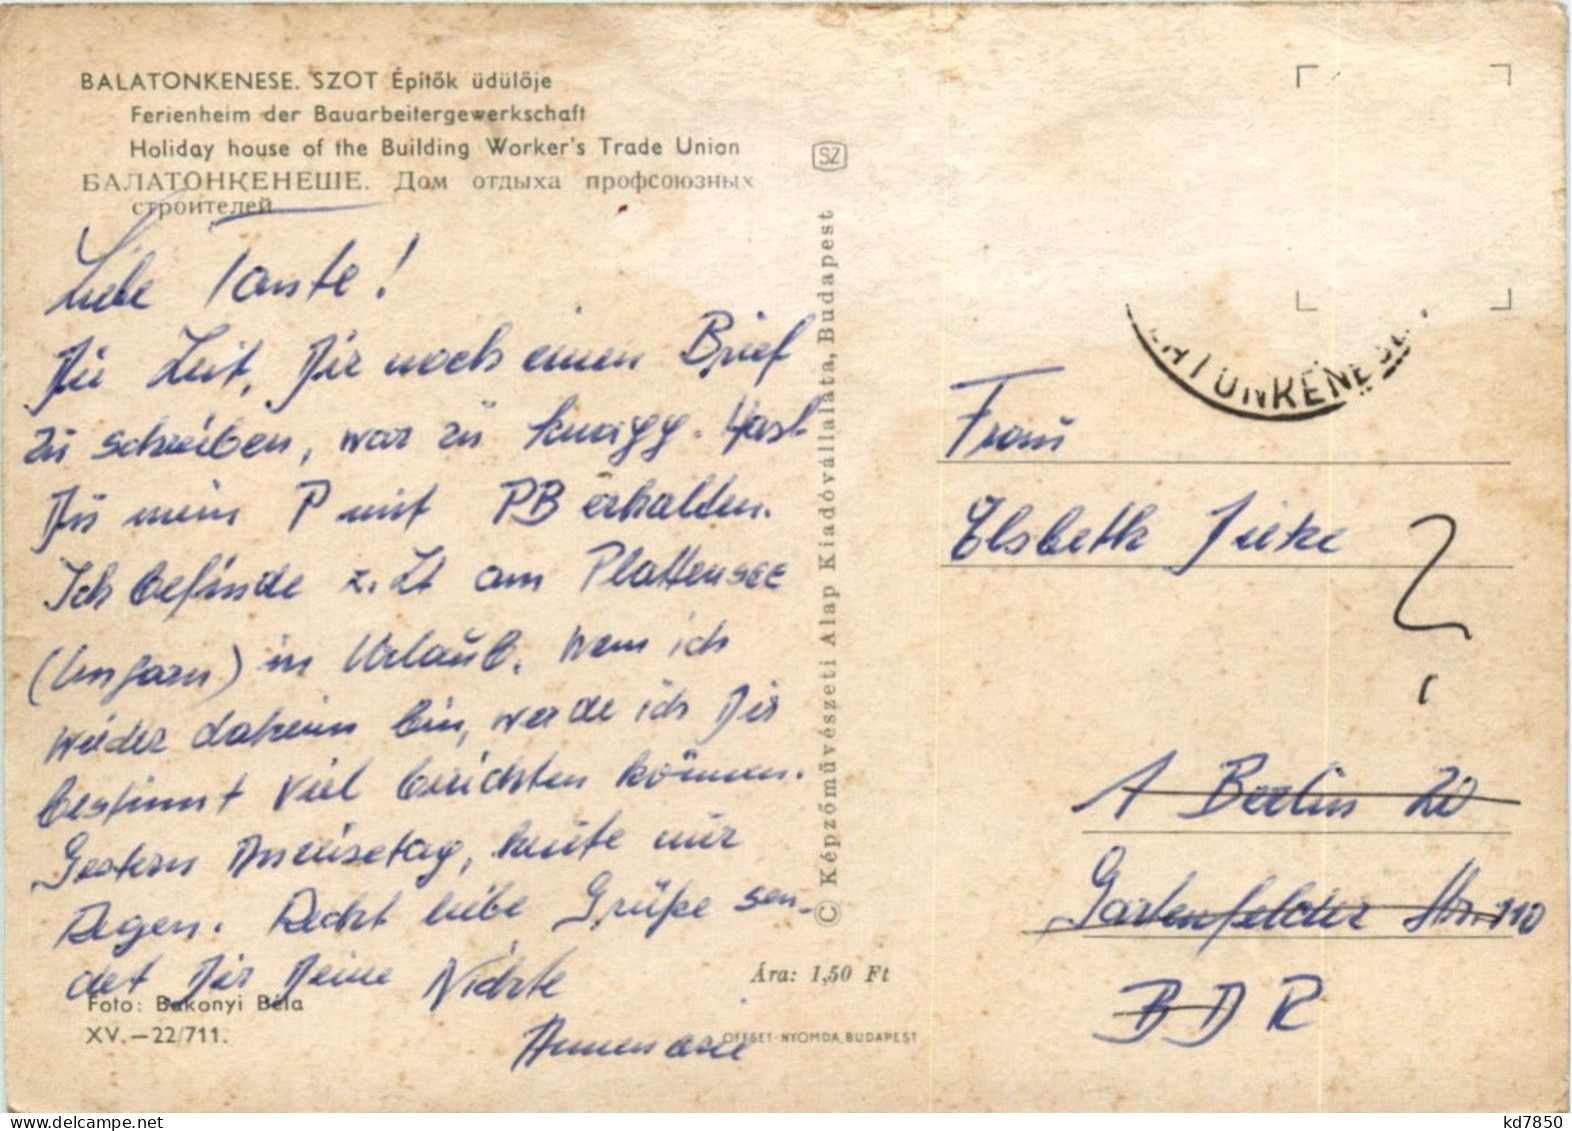 BALATONKENESE. SZOT Építők üdülője
Ferienheim der Bauarbeitergewerkschaft
Holiday house of the Building Worker's Trade Union
БАЛАТОНКЕНЕШЕ. Дом отдыха профсоюзных
строителей
Liebe Tante!
Die Zeit, Dir noch einen Brief
zu schreiben, war zu knapp. Hast
Du mein P mit PB erhalten.
Ich befinde z. Zt am Plattensee
(Ungarn) in Urlaub. Wenn ich
wieder daheim bin, werde ich Dir
bestimmt viel berichten können.
Gestern Anreisetag, heute nur
Regen. Recht liebe Grüße sen-
det Dir Deine Nichte
Annerose
Foto: Bakonyi Béla
XV.—22/711.
SZ
© Képzőművészeti Alap Kiadóvállalata, Budapest
Ára: 1,50 Ft
OFFSET-NYOMDA, BUDAPEST
ATONKENESE
Frau
Elsbeth
?
1 Berlin 20
Gartenfelder Str. 110
BDR
kd7850